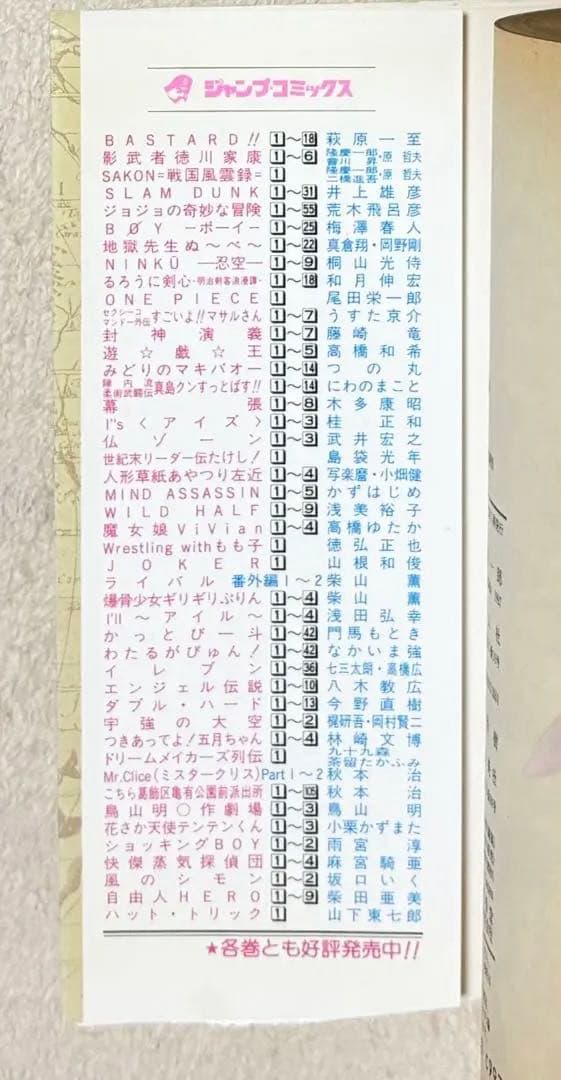 ジャンプ・コミックス
BASTARD!! 1～18 萩原一至
影武者徳川家康 1～6 隆慶一郎・會川 昇・原 哲夫
SAKON=戦国風雲録= 1 隆慶一郎・二橋進吾・原 哲夫
SLAM DUNK 1～31 井上雄彦
ジョジョの奇妙な冒険 1～55 荒木飛呂彦
BØY ―ボーイ― 1～25 梅澤春人
地獄先生ぬ～べ～ 1～22 真倉翔・岡野剛
NINKŪ ―忍空― 1～9 桐山光侍
るろうに剣心・明治剣客浪漫譚・ 1～18 和月伸宏
ONE PIECE 1 尾田栄一郎
セクシーコマンドー外伝 すごいよ!!マサルさん 1～7 うすた京介
封神演義 1～7 藤崎竜
遊☆戯☆王 1～5 高橋和希
みどりのマキバオー 1～14 つの丸
陣内流柔術武闘伝 真島クンすっとばす!! 1～14 にわのまこと
幕張 1～8 木多康昭
I"s〈アイズ〉 1～3 桂正和
仏ゾーン 1～3 武井宏之
世紀末リーダー伝たけし! 1 島袋光年
人形草紙あやつり左近 1～4 写楽麿・小畑健
MIND ASSASSIN 1～5 かずはじめ
WILD HALF 1～9 浅美裕子
魔女娘ViVian 1～4 高橋ゆたか
Wrestling withもも子 1 徳弘正也
JOKER 1 山根和俊
ライバル 番外編1～2 柴山薫
爆骨少女ギリギリぷりん 1～4 柴山薫
I'll ～アイル～ 1～4 浅田弘幸
かっとび一斗 1～42 門馬もとき
わたるがぴゅん! 1～42 なかいま強
イレブン 1～36 七三太朗・高橋広
エンジェル伝説 1～10 八木教広
ダブル・ハード 1～13 今野直樹
宇強の大空 1～2 梶研吾・岡村賢二
つきあってよ!五月ちゃん 1～4 林崎文博
ドリームメイカーズ列伝 1 九十九森 茶留たかふみ
Mr.Clice(ミスタークリス)Part 1～2 秋本治
こちら葛飾区亀有公園前派出所 1～105 秋本治
鳥山明○作劇場 1～3 鳥山明
花さか天使テンテンくん 1～3 小栗かずまた
ショッキングBOY 1～2 雨宮淳
快傑蒸気探偵団 1～4 麻宮騎亜
風のシモン 1～2 坂口いく
自由人HERO 1～9 柴田亜美
ハット・トリック 1 山下東七郎
★各巻とも好評発売中!!